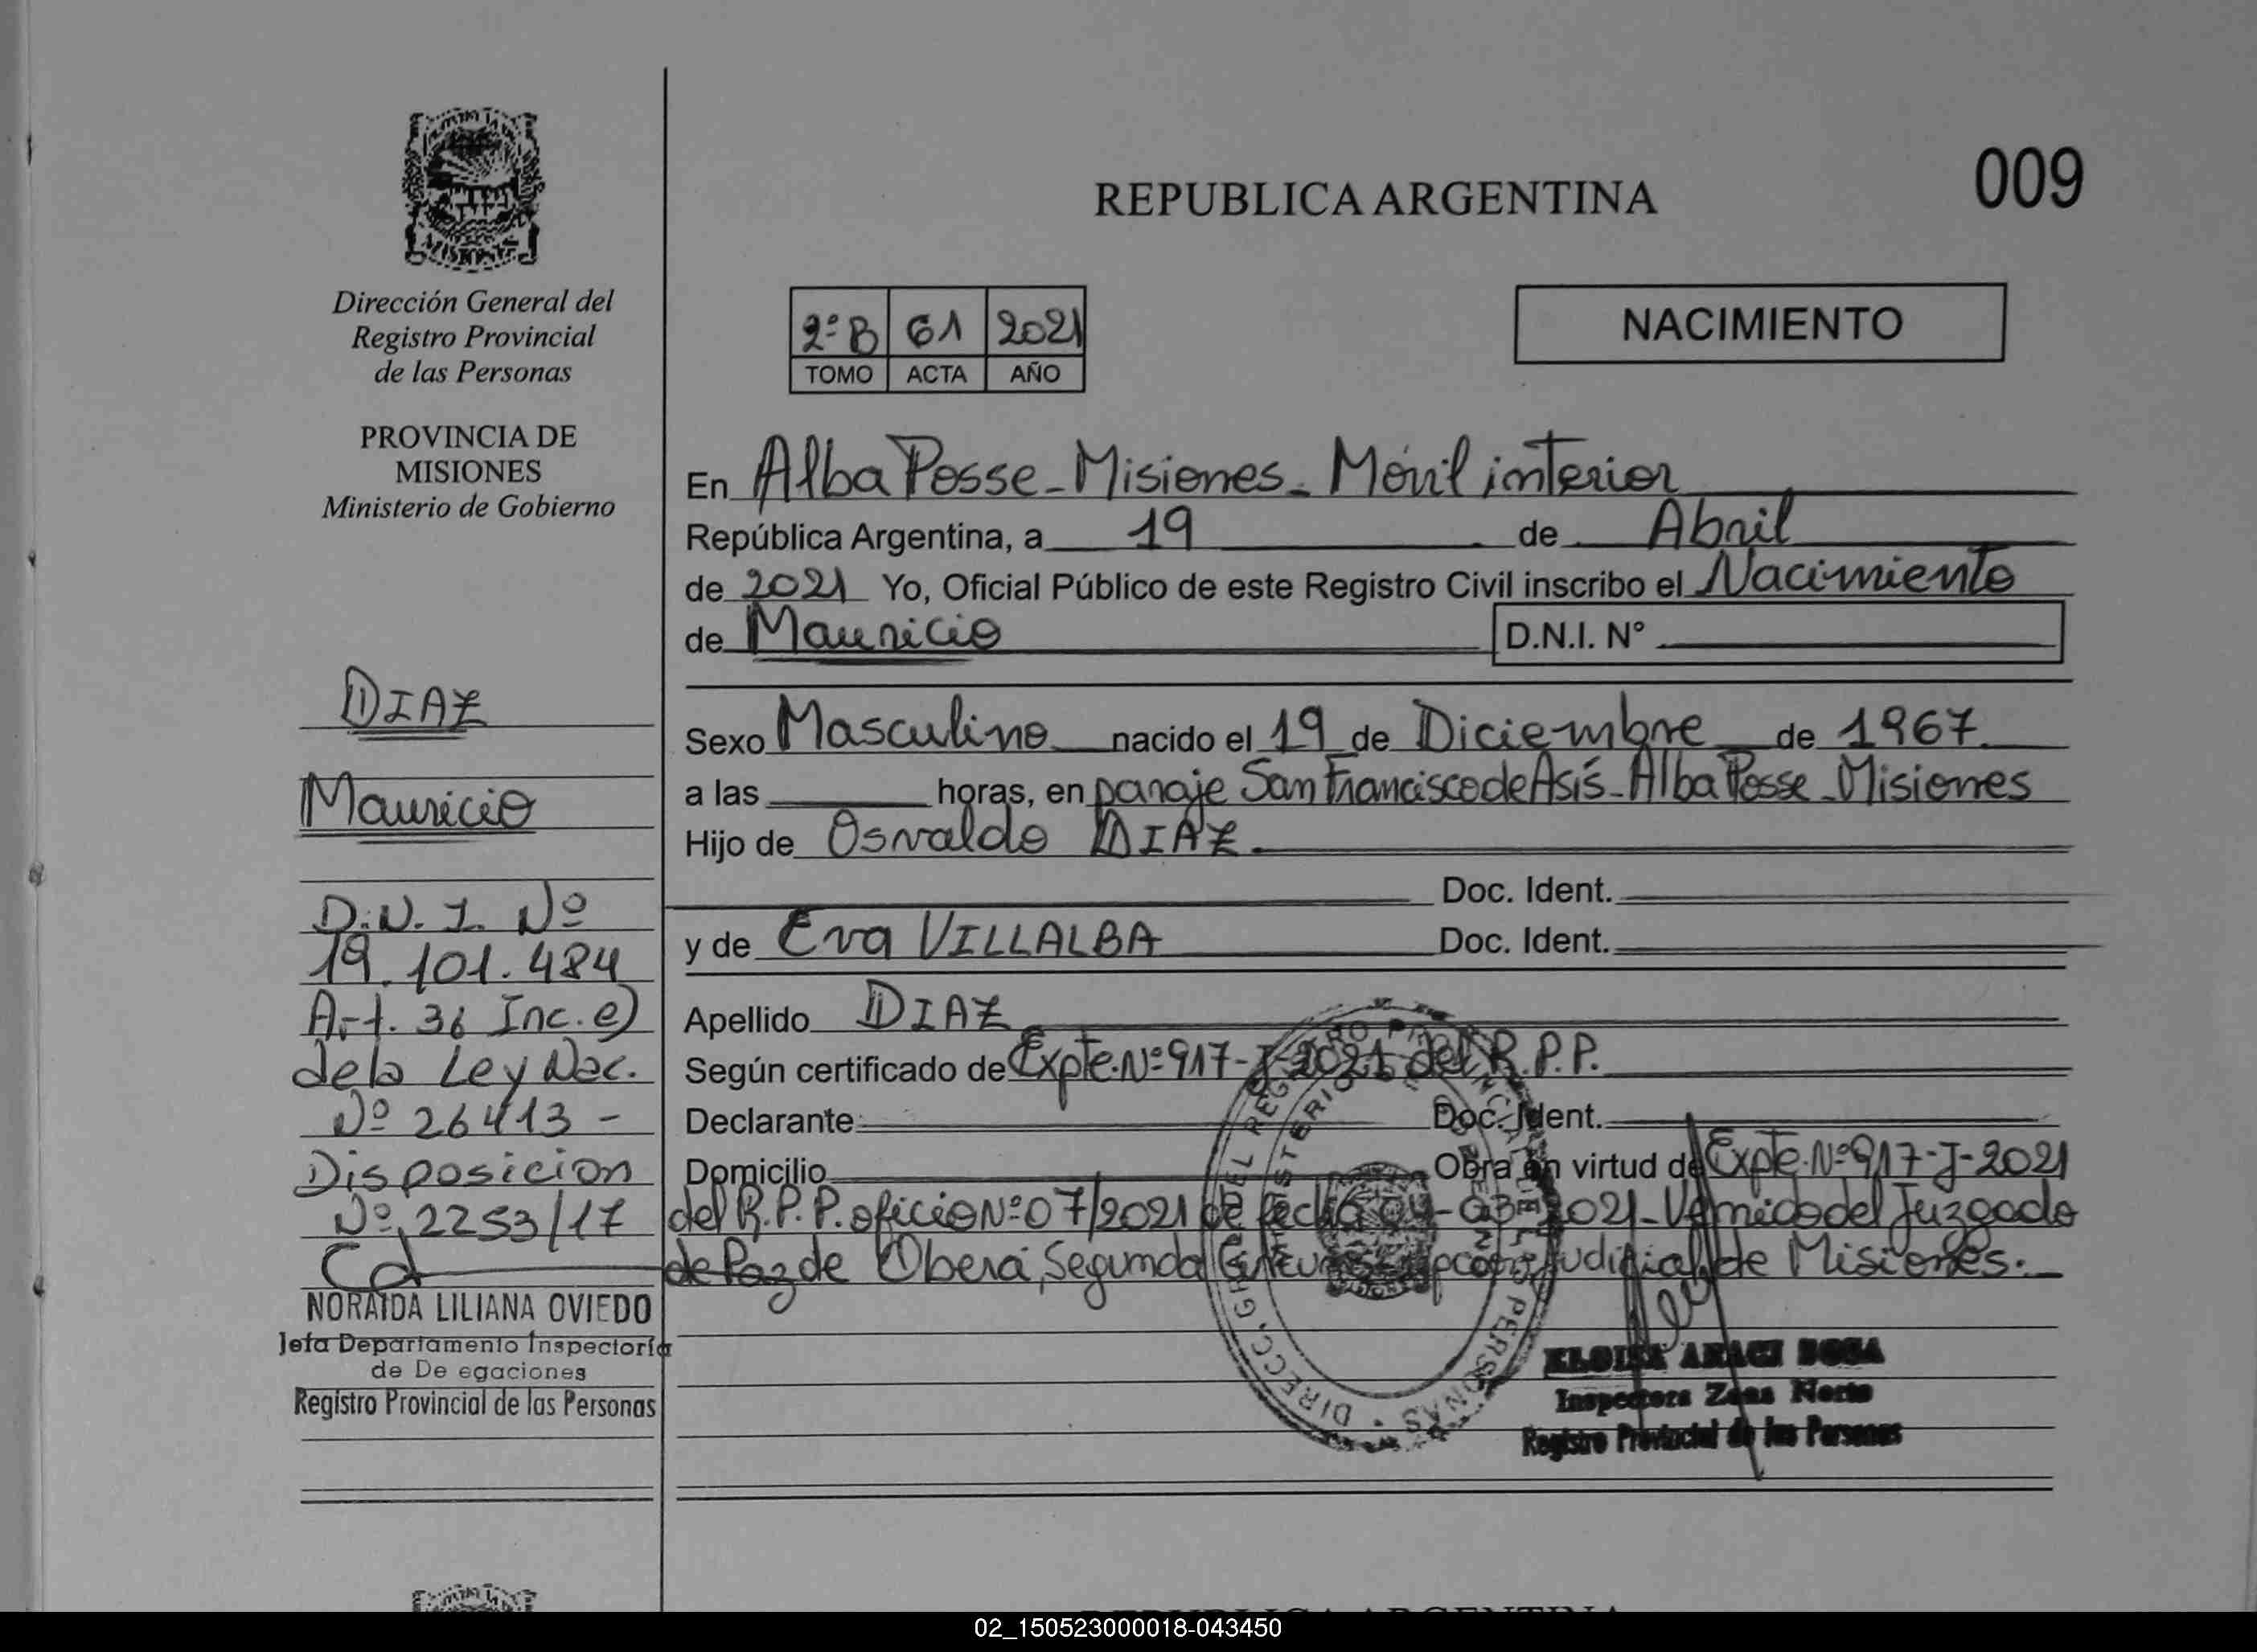 Dirección General del
Registro Provincial
de las Personas
PROVINCIA DE
MISIONES
Ministerio de Gobierno
DIAZ
Mauricio
D.N.I. Nº
19.101.484
Art. 36 Inc. e)
de la Ley Nac.
Nº 26413 -
Disposicion
Nº 2253/17
NORAIDA LILIANA OVIEDO
Jefa Departamento Inspectoría
de De egaciones
Registro Provincial de las Personas
REPUBLICA ARGENTINA
009
2º B 61 2021
TOMO ACTA AÑO
NACIMIENTO
En Alba Posse - Misiones - Móvil interior
República Argentina, a 19 de Abril
de 2021 Yo, Oficial Público de este Registro Civil inscribo el Nacimiento
de Mauricio D.N.I. Nº
Sexo Masculino nacido el 19 de Diciembre de 1967.
a las horas, en paraje San Francisco de Asís - Alba Posse - Misiones
Hijo de Osvaldo DIAZ.
Doc. Ident.
y de Eva VILLALBA Doc. Ident.
Apellido DIAZ
Según certificado de Expte. Nº 917-J-2021 del R.P.P.
Declarante Doc. Ident.
Domicilio Obra en virtud de Expte. Nº 917-J-2021
del R.P.P. oficio Nº 07/2021 de fecha 04-03-2021 - Venido del Juzgado
de Paz de Oberá, Segunda Judicial de Misiones.
DIRECC. GRAL. DEL REGISTRO PROVINCIAL DE LAS PERSONAS
MINISTERIO
ELOISA ARACI SOSA
Inspectora Zona Norte
Registro Provincial de las Personas
REPUBLICA ARGENTINA
02_150523000018-043450